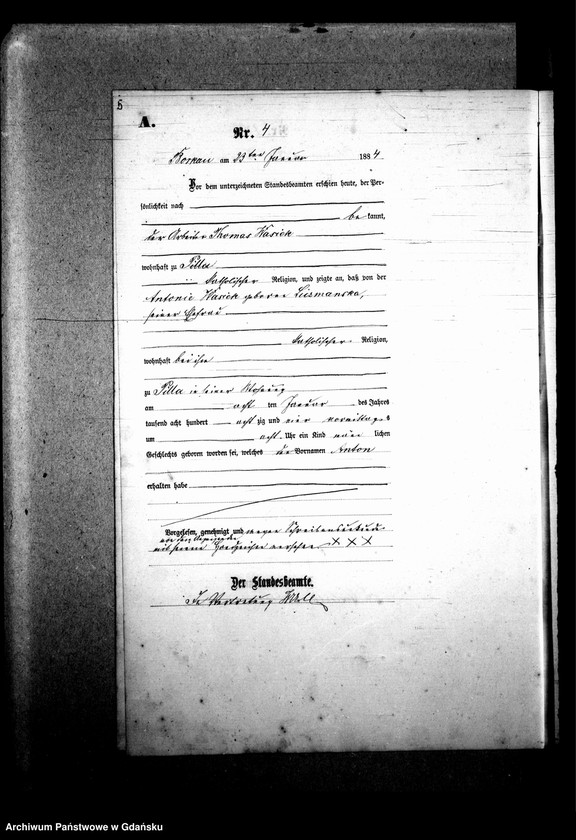 A.
Nr. 4
am 23ten Januar 1884.
Vor dem unterzeichneten Standesbeamten erschien heute, der Per-
sönlichkeit nach
be kannt,
der Arbeiter Thomas Kasick
wohnhaft zu Pilla
katholischer Religion, und zeigte an, daß von der
Antonie Kasick geborne
seiner Ehefrau
katholischer Religion,
wohnhaft bei ihm
zu Pilla in seiner Wohnung
am acht ten Januar des Jahres
tausend acht hundert acht zig und vier vormittag s
um acht Uhr ein Kind männ lichen
Geschlechts geboren worden sei, welches den Vornamen Anton
erhalten habe
Vorgelesen, genehmigt und wegen
mit seinem Handzeichen versehen XXX
Der Standesbeamte.
In Vertretung
Archiwum Państwowe w Gdańsku